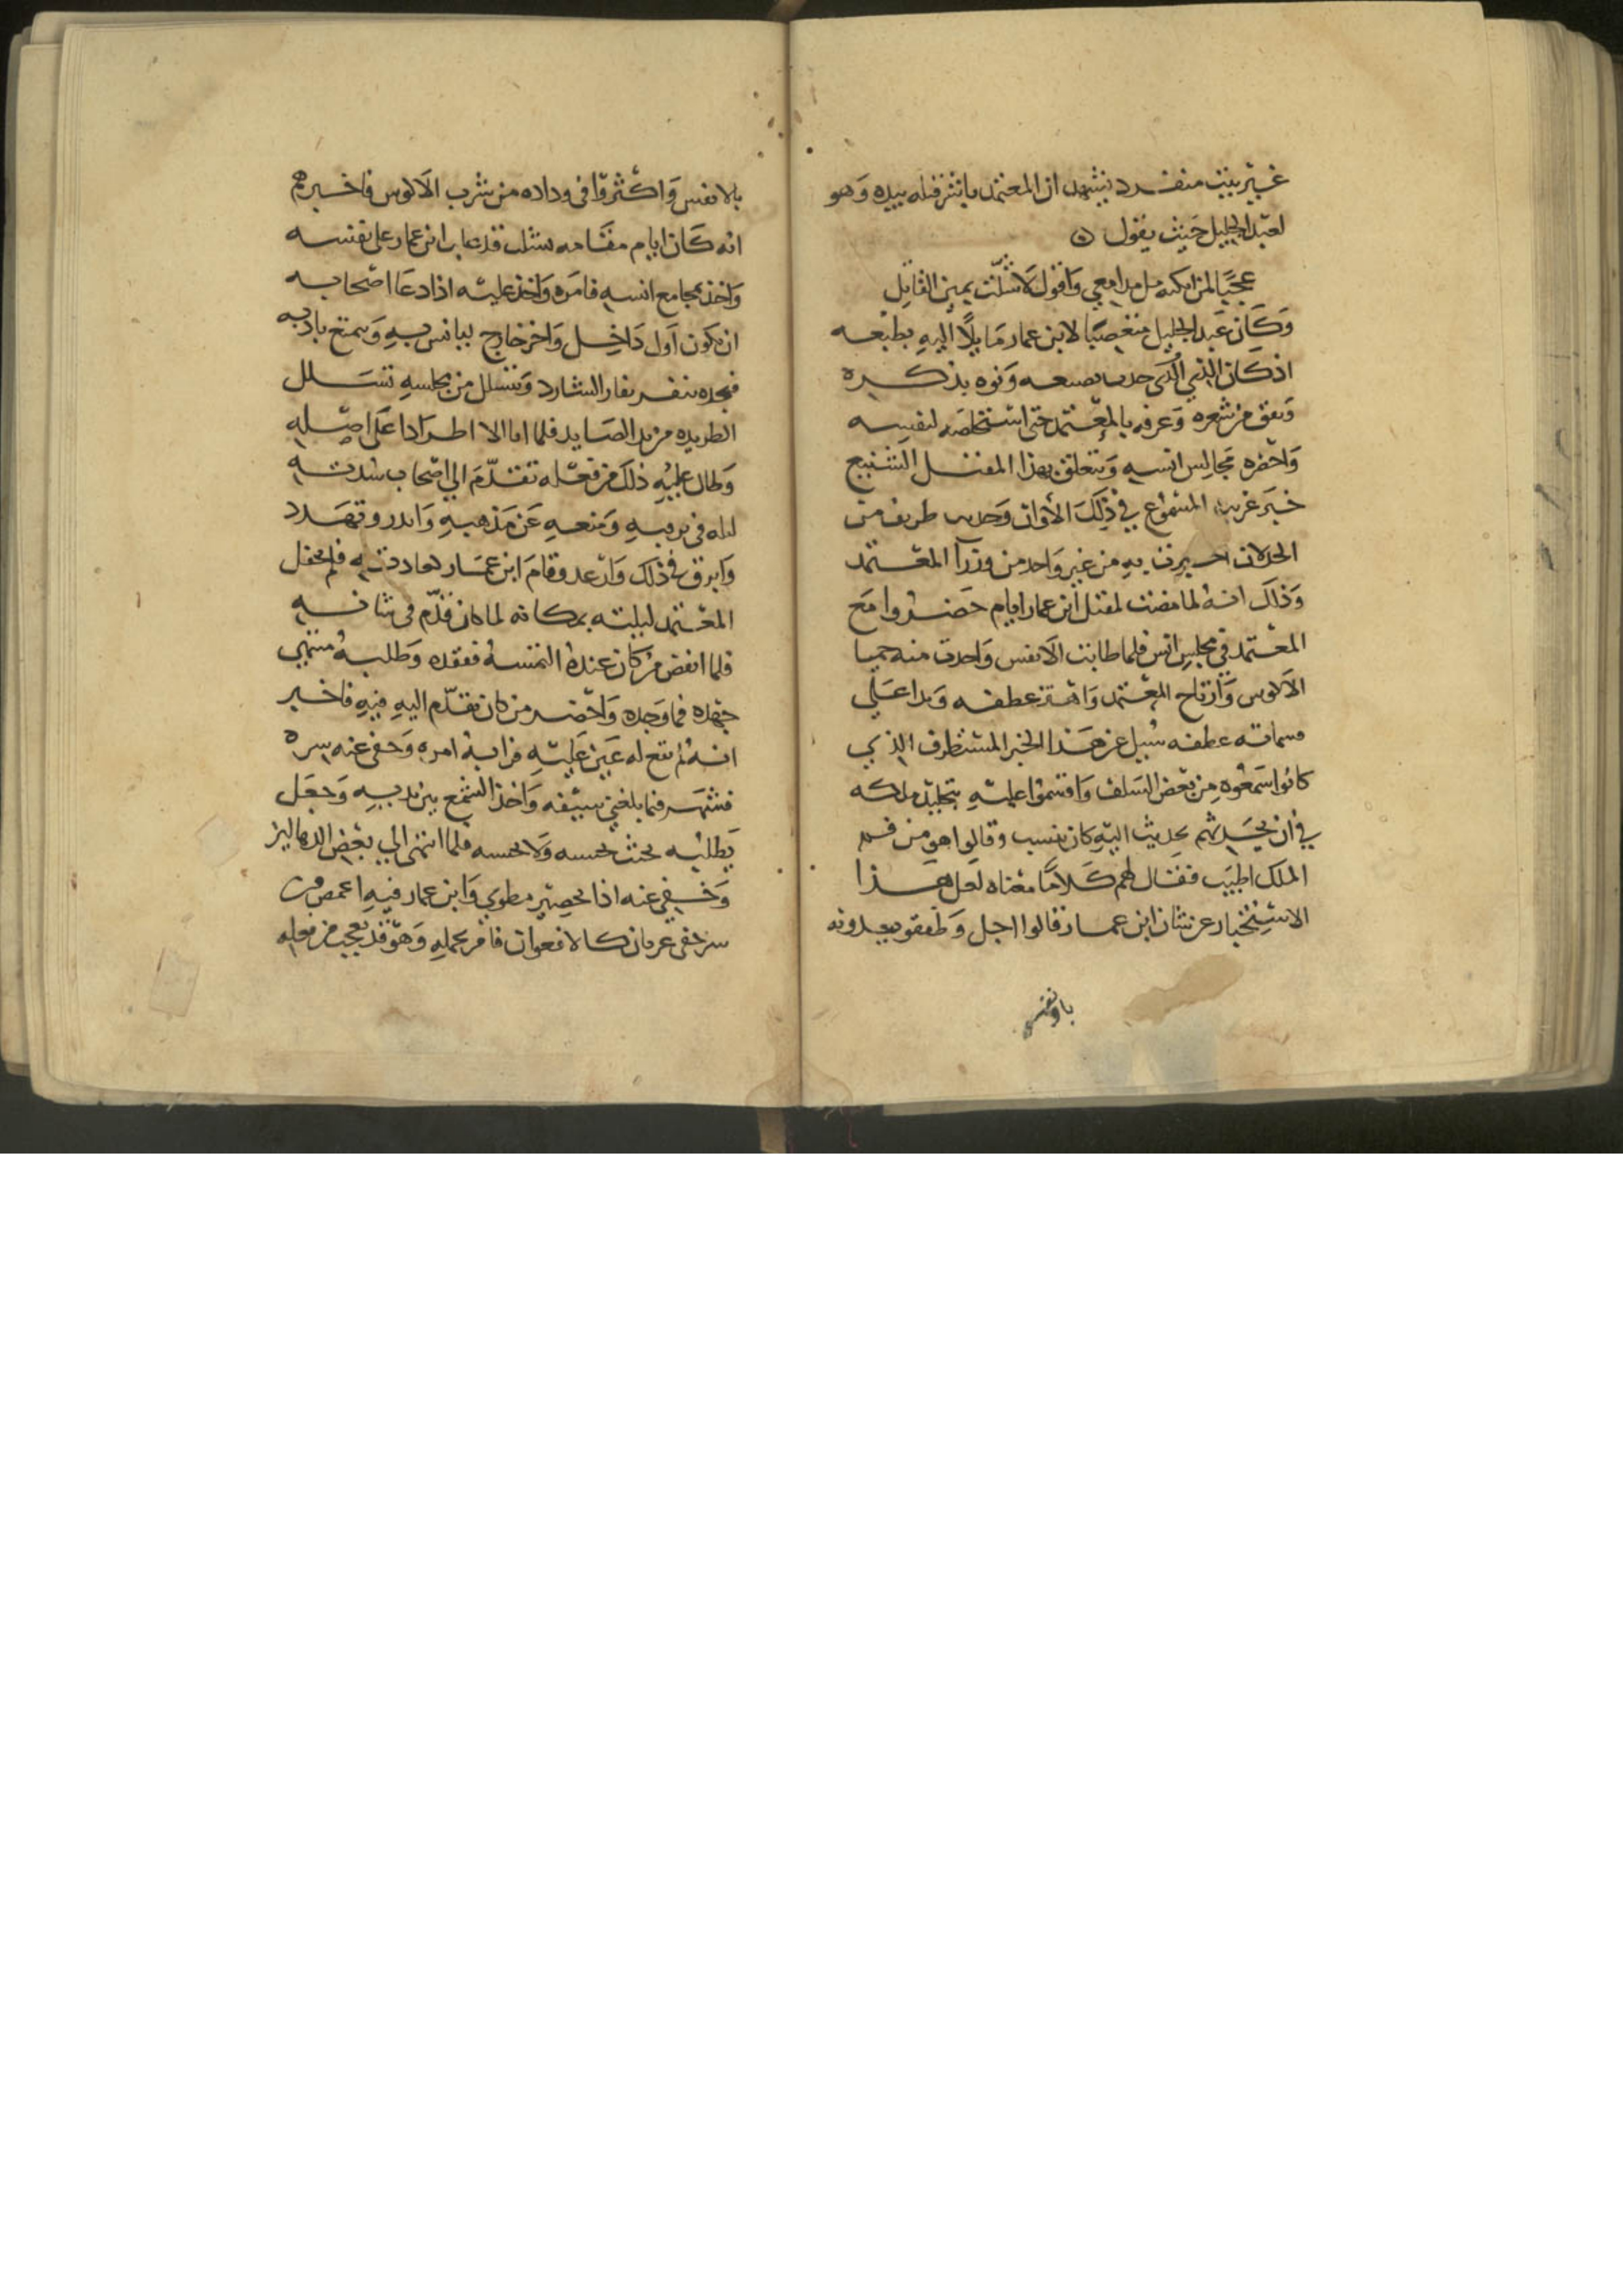 غير بيت منفرد يشهد ان المعتمد باشر قتله بيده وهو
لعبد الجليل حيث يقول
عجبا لمن ابكيه مل مدامعي واقول لا شلت يمين القاتل
وكان عبد الجليل متعصبا لابن عمار مايلا اليه بطبعه
اذ كان الذي بضبعه ونوه بذكره
ونفق من شعره وعرفه بالمعتمد حتى استخلصه لنفسه
واحضره مجالس انسه ويتعلق بهذا المقتل الشنيع
خبر غريب المسموع في ذلك الاوان طريف من
اخبرت به من غير واحد من وزرا المعتمد
وذلك انه لما مضت لمقتل ابن عمار ايام حضروا مع
المعتمد في مجلس انس فلما طابت الانفس واخذت منه حميا
الاكوس وارتاح المعتمد واهتز عطفه وبدا علي
عطفه سيل عن هذا الخبر المستظرف الذي
كانوا سمعوه من بعض السلف واقسموا عليه بتخليد ملكه
في ان يحدثهم بحديث اليه كان ينسب وقالوا هو من فم
الملك اطيب فقال لهم كلاما معناه لعل هذا
الاستخبار عن شان ابن عمار قالوا اجل وطفقو يفدونه
بالانفس
بالانفس واكثروا في وداده من شرب الاكوس فاخبرهم
انه كان ايام مقامه بشلب قد غلب ابن عمار على نفسه
واخذ بمجامع انسه فامره واخذ عليه اذا دعا اصحابه
ان يكون اول داخل واخر خارج ليانس به ويمتع بادبه
فيجده ينفر نفار الشارد ويتسلل من مجلسه تسلل
الطريده من يد الصايد فلما الا اطرادا على اصله
وطال عليه ذلك من فعله تقدم الي اصحاب سدته
ليله في ومنعه عن مذهبه وتهدد
وابرق في ذلك وارعد وقام ابن عمار لعادته فلم يحفل
المعتمد ليلته بمكانه لما كان قدم في شانه
فلما انفض من كان عنده التمسه ففقده وطلبه منتهي
جهده فما وجده واحضر من كان تقدم اليه فيه فاخبر
انه لم تقع له عين عليه فرابه امره وخفي عنه سره
فشهر فيما بلغني سيفه واخذ الشمع بين يديه وجعل
يطلبه بحيث يحسبه ولا يحسبه فلما انتهى الي بعض الدهاليز
وخفي عنه اذا بحصير مطوي وابن عمار فيه اغمض من
سر خفي عريان كالافعوان فامر بحمله وهو قد تعجب من فعله